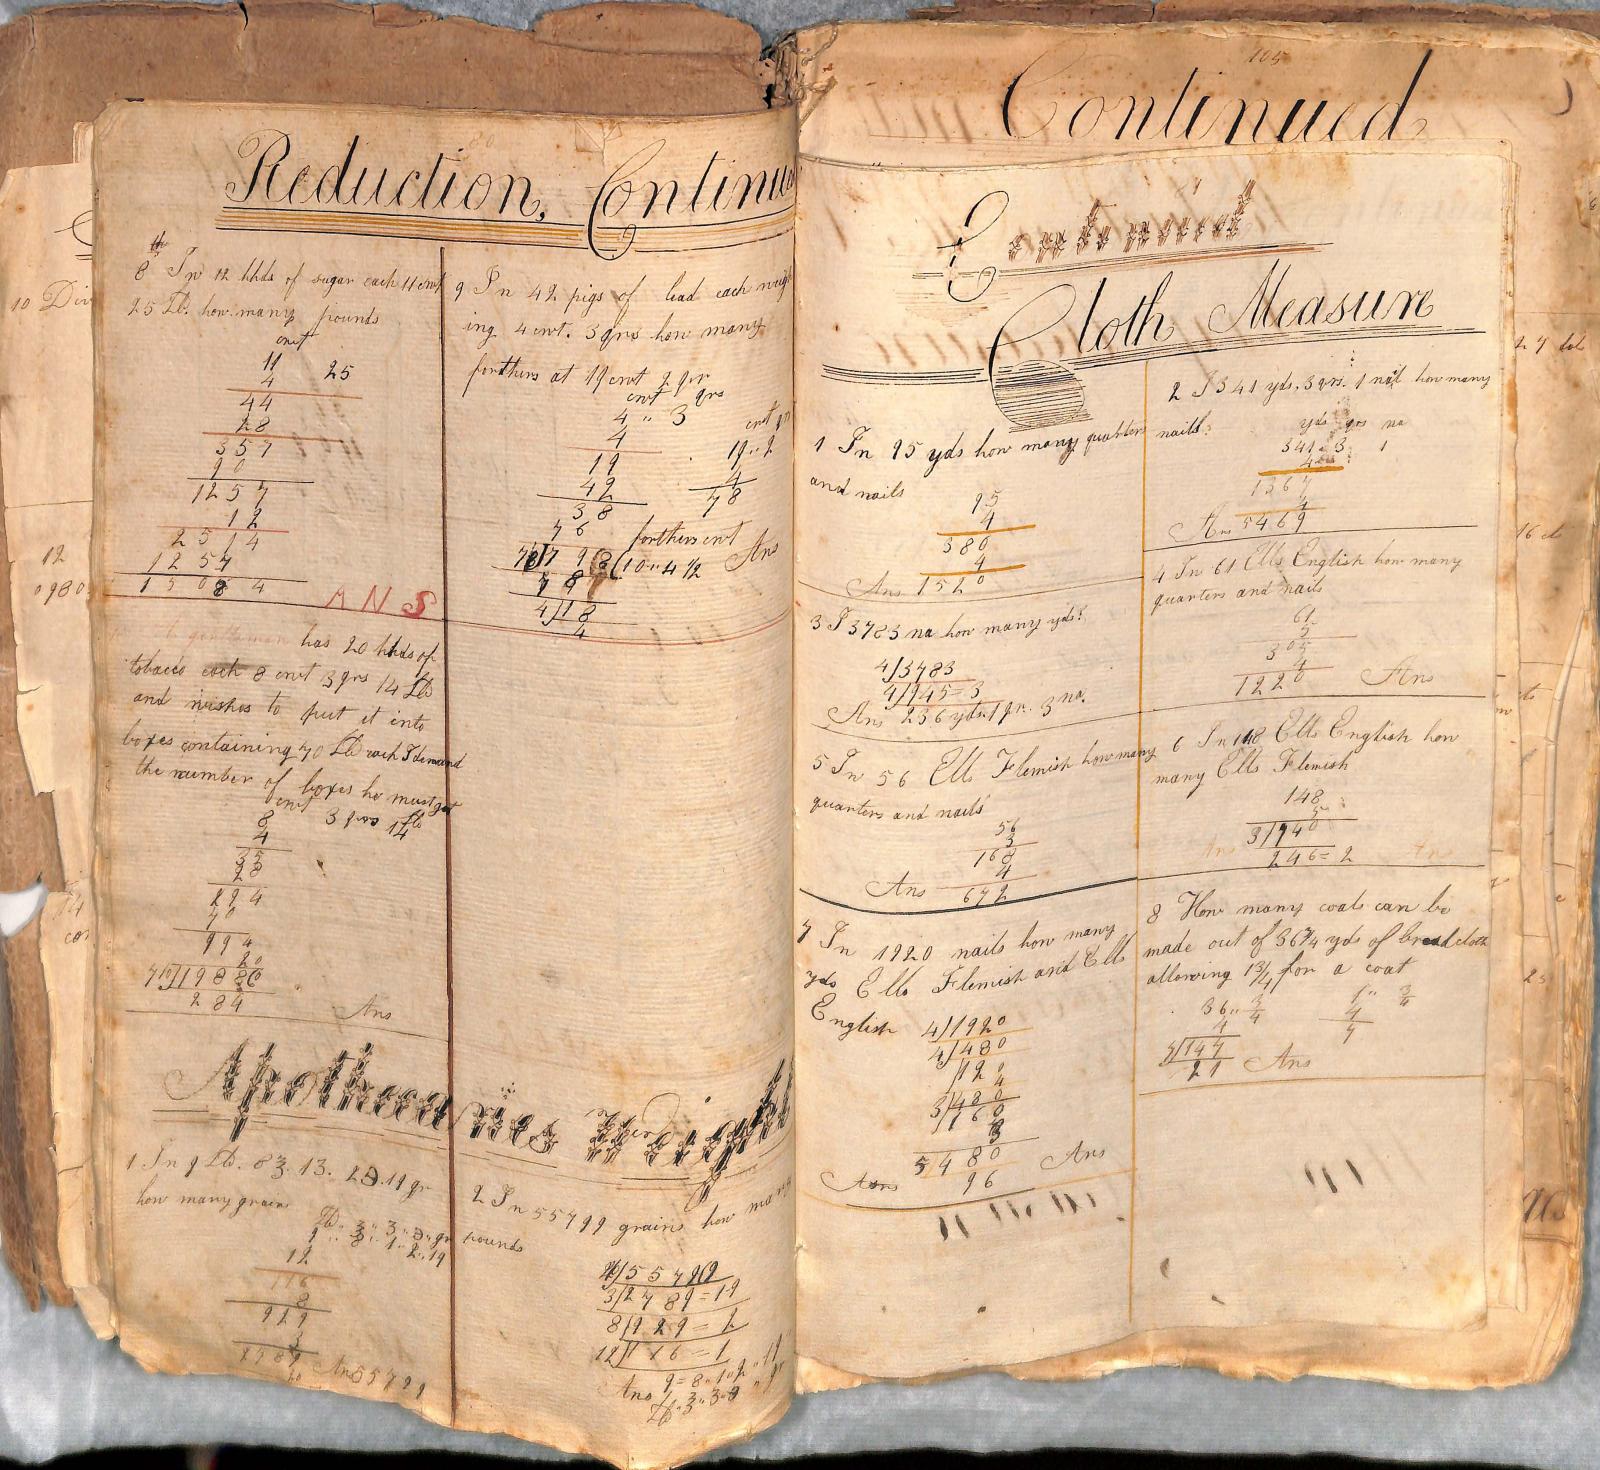 Reduction, Continued
8 In 12 hhds of sugar each 11 cwt
25 Lb. how many pounds
cwt
11 25
4
44
28
357
90
1257
12
2514
1257
15084
ANS
A gentleman has 20 hhds of
tobacco each 8 cwt 3 qrs 14 Lb
and wishes to put it into
boxes containing 70 Lb each I demand
the number of boxes he must get
cwt
8 3 qrs 14
4
35
28
294
70
994
20
70)19880
284
Ans
9 In 42 pigs of lead each weigh
ing 4 cwt. 3 qrs how many
forthers at 19 cwt 2 qrs
cwt qrs
4 " 3
4
19
42
38
76
19 " 2
4
78
forthers cwt
78)798(10 " 4 1/2 Ans
78
4)18
4
Apothecaries Weight
how many grains
12
116
8
929
3
2789
20
Ans 55799
2 In 55799 grains how many
pounds
3)2789=19
8)929=2
12)116=1
9=8"1"2"19
Ans
105
Continued
Continued
Cloth Measure
1 In 95 yds how many quarters
and nails
95
4
380
4
Ans 1520
2 I 341 yds. 3 qrs. 1 nail how many
nails?
yds qrs na
341 3 1
4
1367
4
Ans 5469
3 I 3783 na how many yds?
4)3783
4)945=3
Ans 236 yds. 1 qr. 3 na.
4 In 61 Ells English how many
quarters and nails
61
5
305
4
1220
Ans
5 In 56 Ells Flemish how many
quarters and nails
56
3
168
4
Ans 672
6 In 148 Ells English how
many Ells Flemish
148
5
3)740
Ans 246=2 Ans
7 In 1920 nails how many
yds Ells Flemish and Ells
English
4)1920
4)480
120
4
3)480
160
3
5 480 Ans
Ans 96
8 How many coats can be
made out of 36 3/4 yds of broadcloth
allowing 1 3/4 for a coat
36 " 3/4
4
7)147
21 Ans
1 " 3/4
4
7